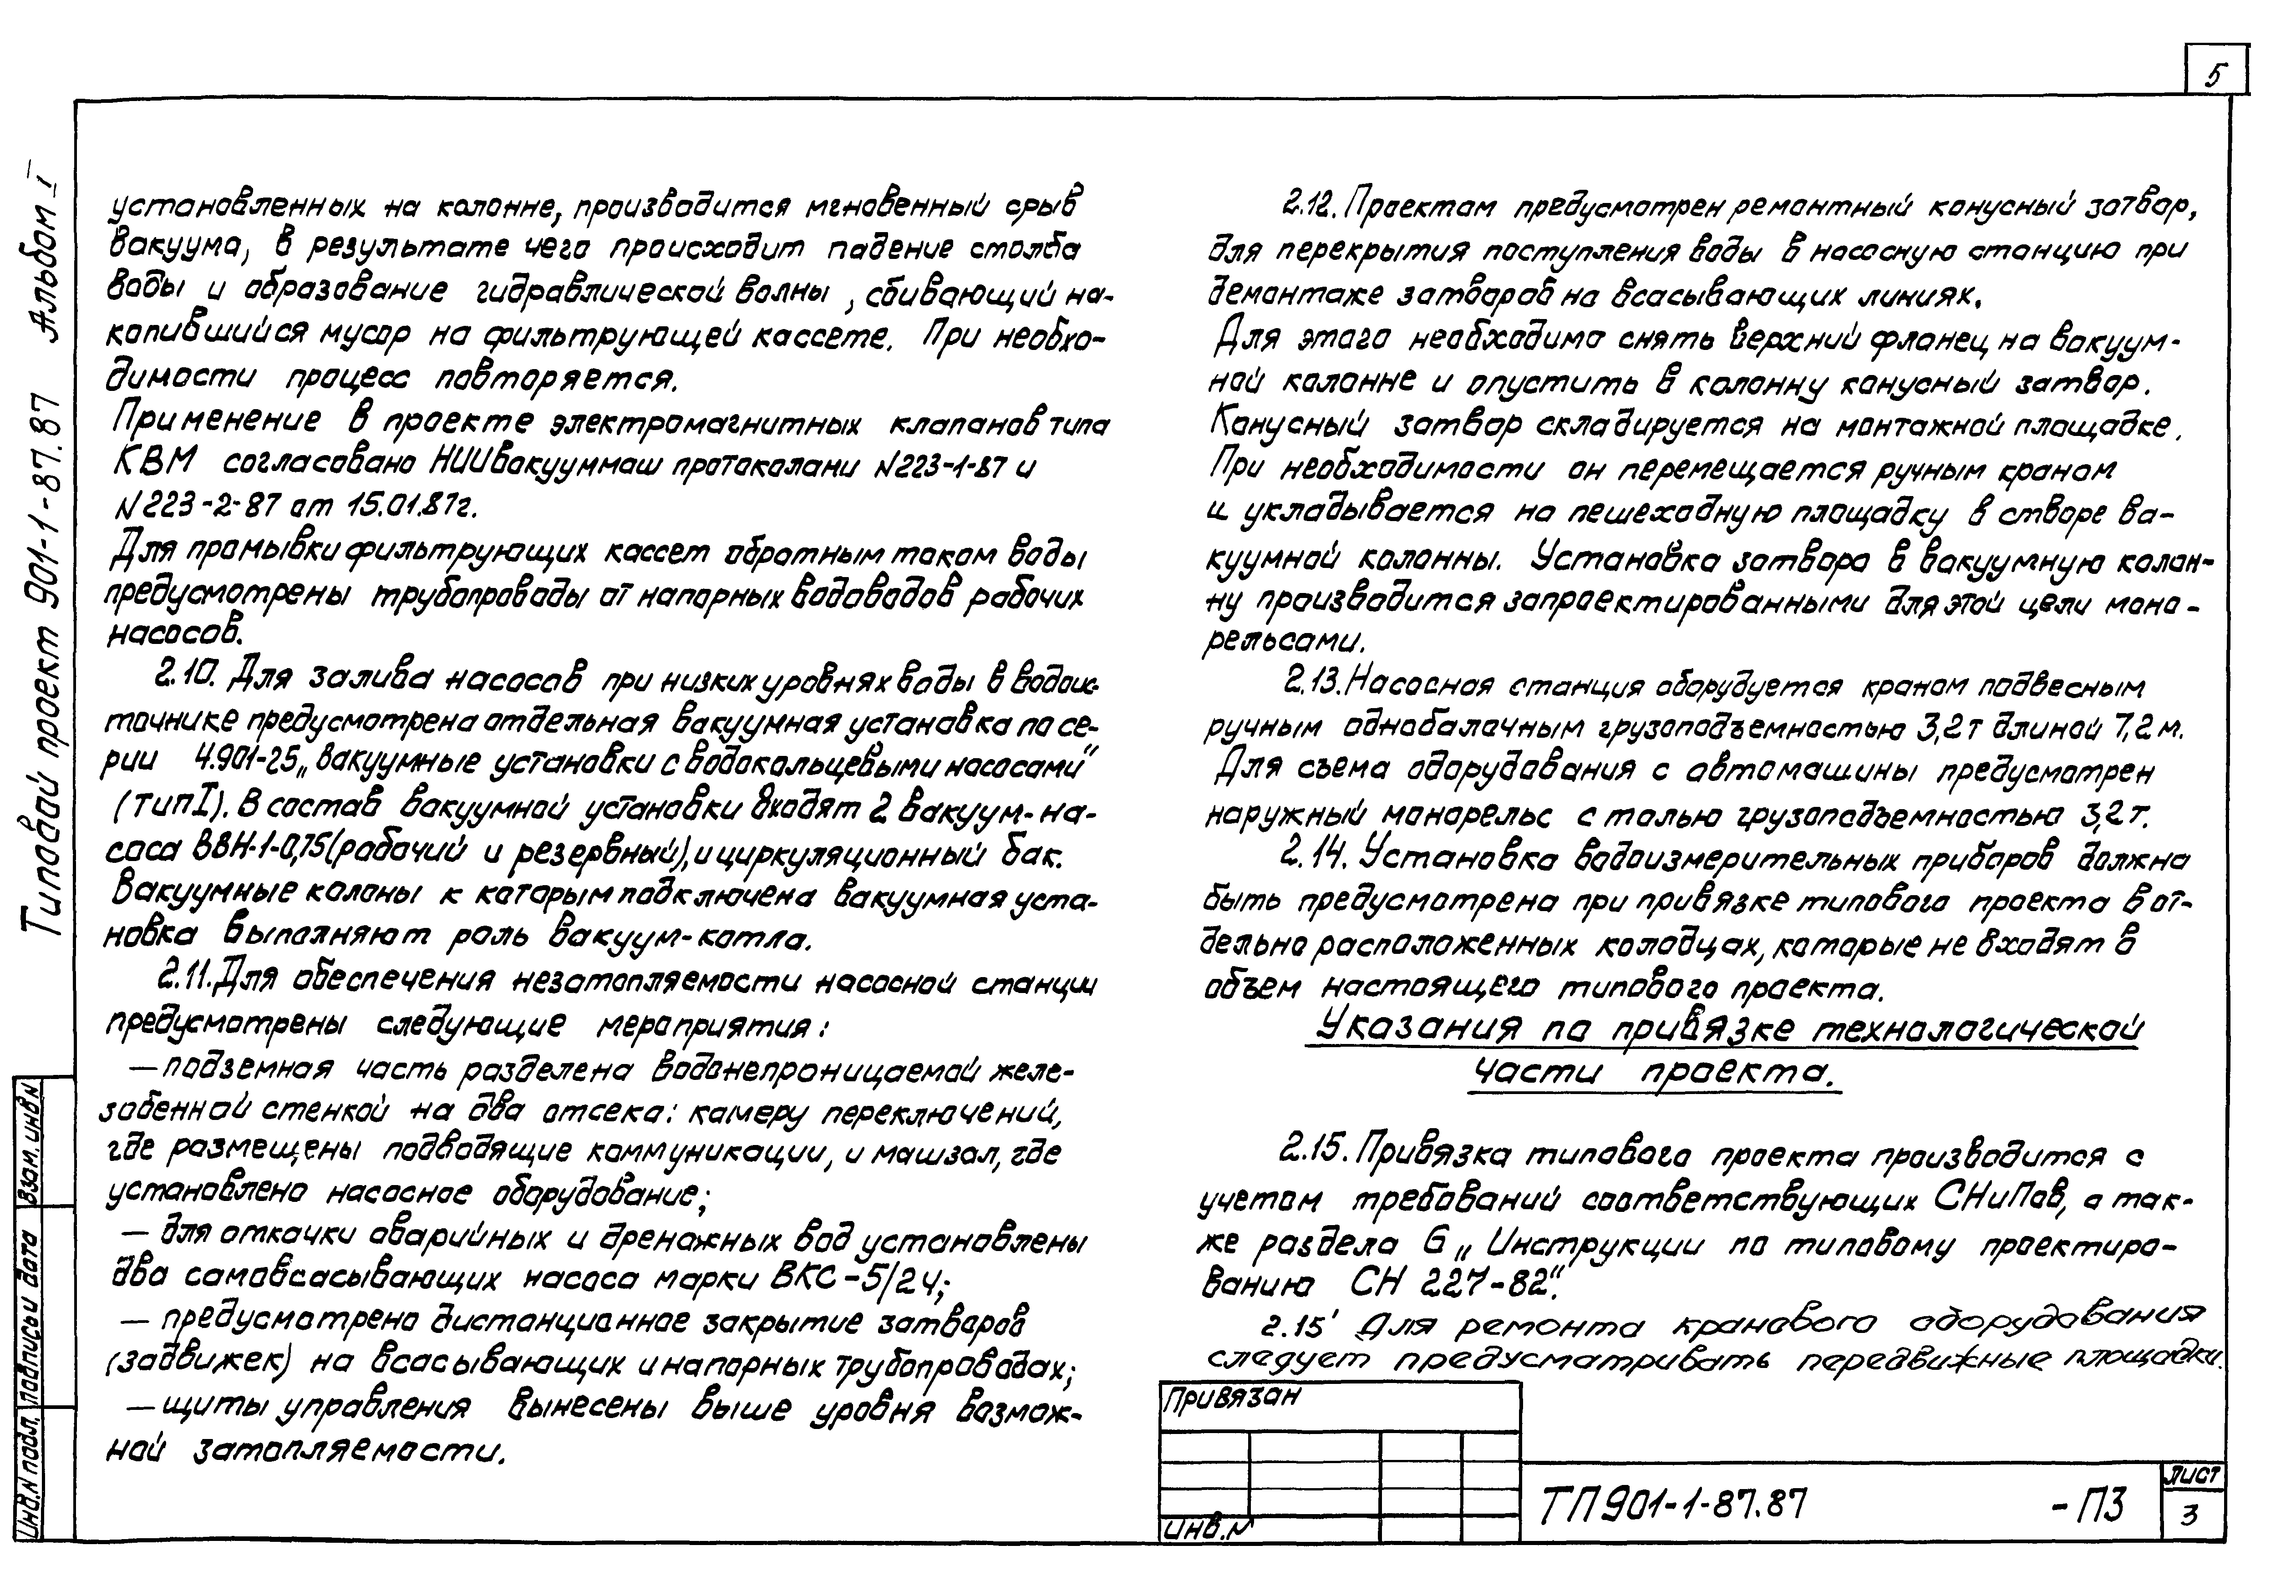 5
Типовой проект 901-1-87.87 Альбом I
установленных на колонне, производится мгновенный срыв
вакуума, в результате чего происходит падение столба
воды и образование гидравлической волны, сбивающий на-
копившийся мусор на фильтрующей кассете. При необхо-
димости процесс повторяется.
Применение в проекте электромагнитных клапанов типа
КВМ согласовано НИИвакууммаш протоколани N223-1-87 и
N223-2-87 от 15.01.87г.
Для промывки фильтрующих кассет обратным током воды
предусмотрены трубопроводы от напорных водоводов рабочих
насосов.
2.10. Для залива насосов при низких уровнях воды в водоис-
точнике предусмотрена отдельная вакуумная установка по се-
рии 4.901-25 „Вакуумные установки с водокольцевыми насосами"
(тип I). В состав вакуумной установки входят 2 вакуум-на-
соса ВВН-1-0,75 (рабочий и резервный), и циркуляционный бак.
Вакуумные колоны к которым подключена вакуумная уста-
новка выполняют роль вакуум-котла.
2.11. Для обеспечения незатопляемости насосной станции
предусмотрены следующие мероприятия:
— подземная часть разделена водонепроницаемой желе-
зобенной стенкой на два отсека: камеру переключений,
где размещены подводящие коммуникации, и машзал, где
установлено насосное оборудование;
— для откачки аварийных и дренажных вод установлены
два самовсасывающих насоса марки ВКС-5/24;
— предусмотрено дистанционное закрытие затворов
(задвижек) на всасывающих и напорных трубопроводах;
— щиты управления вынесены выше уровня возмож-
ной затопляемости.
2.12. Проектам предусмотрен ремонтный конусный затвор,
для перекрытия поступления воды в насосную станцию при
демонтаже затворов на всасывающих линиях.
Для этого необходимо снять верхний фланец на вакуум-
ной колонне и опустить в колонну конусный затвор.
Конусный затвор складируется на монтажной площадке.
При необходимости он перемещается ручным краном
и укладывается на пешеходную площадку в створе ва-
куумной колонны. Установка затвора в вакуумную колон-
ну производится запроектированными для этой цели моно-
рельсами.
2.13. Насосная станция оборудуется краном подвесным
ручным однобалочным грузоподъемностью 3,2т длиной 7,2м.
Для съема одорудования с автомашины предусмотрен
наружный монорельс с талью грузоподъемностью 3,2т.
2.14. Установка водоизмерительных приборов должна
быть предусмотрена при привязке типового проекта в от-
дельно расположенных колодцах, которые не входят в
объем настоящего типового проекта.
Указания по привязке технологической
части проекта.
2.15. Привязка типового проекта производится с
учетом требований соответствующих СНиПов, а так-
же раздела 6 „Инструкции по типовому проектиро-
ванию СН 227-82".
2.15' Для ремонта кранового оборудования
следует предусматривать передвижные площадки.
Привязан
Инв.N
ТП901-1-87.87 -ПЗ
Лист
3
Взам. инв N
Подпись и дата
Инв.N подл.